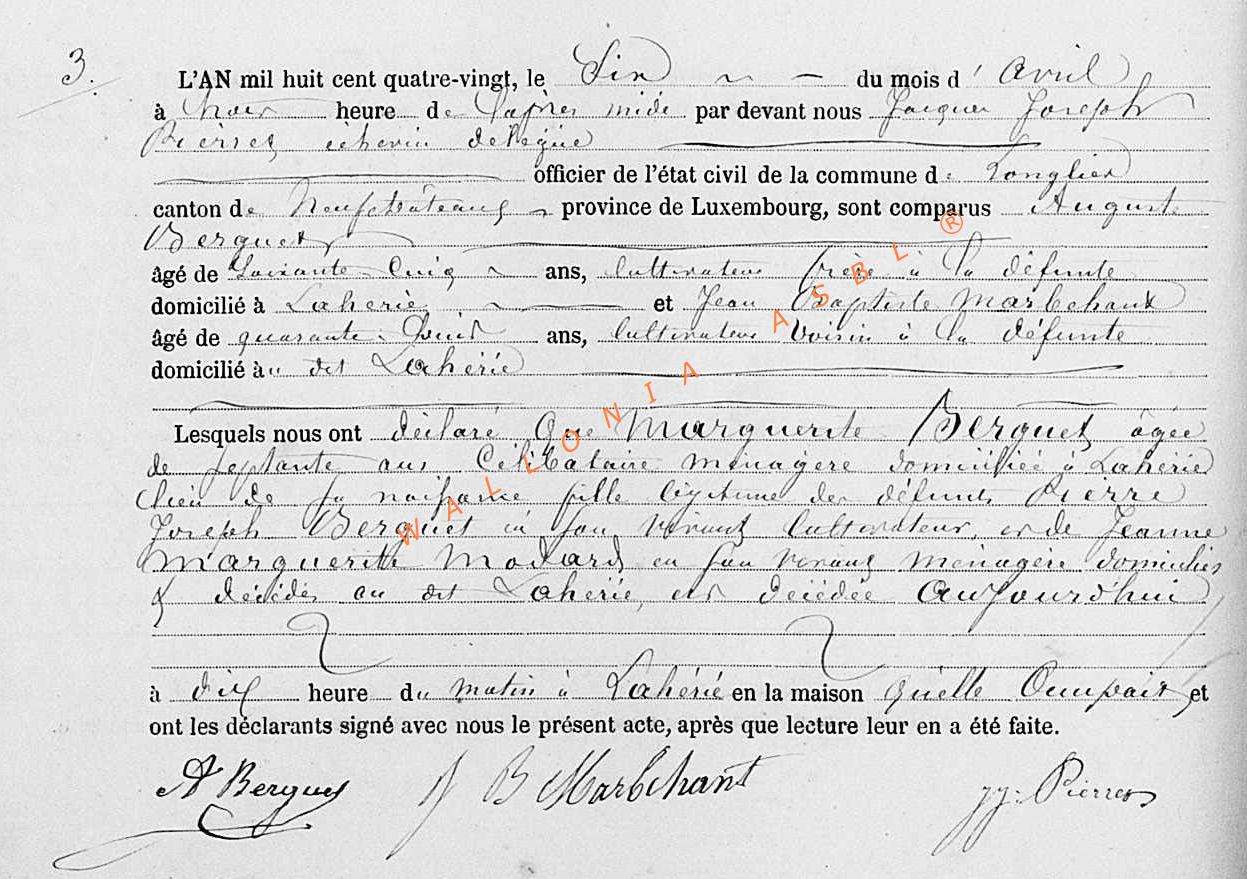 3.
L'AN mil huit cent quatre-vingt, le Six du mois d' Avril
à trois heure de l'après midi par devant nous Jacques Joseph
Pierret échevin délégué
officier de l'état civil de la commune de Longlier
canton de Neufchâteau province de Luxembourg, sont comparus Auguste
Berquet
âgé de Soixante Cinq ans, Cultivateur frère à la défunte
domicilié à Laherie et Jean Baptiste Marbehant
âgé de quarante huit ans, Cultivateur Voisin à la défunte
domicilié àu dit Laherie
Lesquels nous ont déclaré Que Marguerite Berquet âgée
de septante ans Célibataire ménagère domiciliée à Laherie
lieu de sa naissance fille légitime des défunts Pierre
Joseph Berquet en son vivant Cultivateur, et de Jeanne
Marguerite Modard en son vivant ménagère domiciliés
& décédés au dit Laherie, est décédée Aujourd'hui
à dix heure du matin à Lahérie en la maison qu'elle Occupait et
ont les déclarants signé avec nous le présent acte, après que lecture leur en a été faite.
A Berquet J B Marbehant JJ. Pierret
WALLONIA ASBL ®